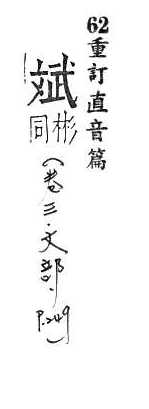 62重訂直音篇
斌同彬(卷三·文部·P.249)